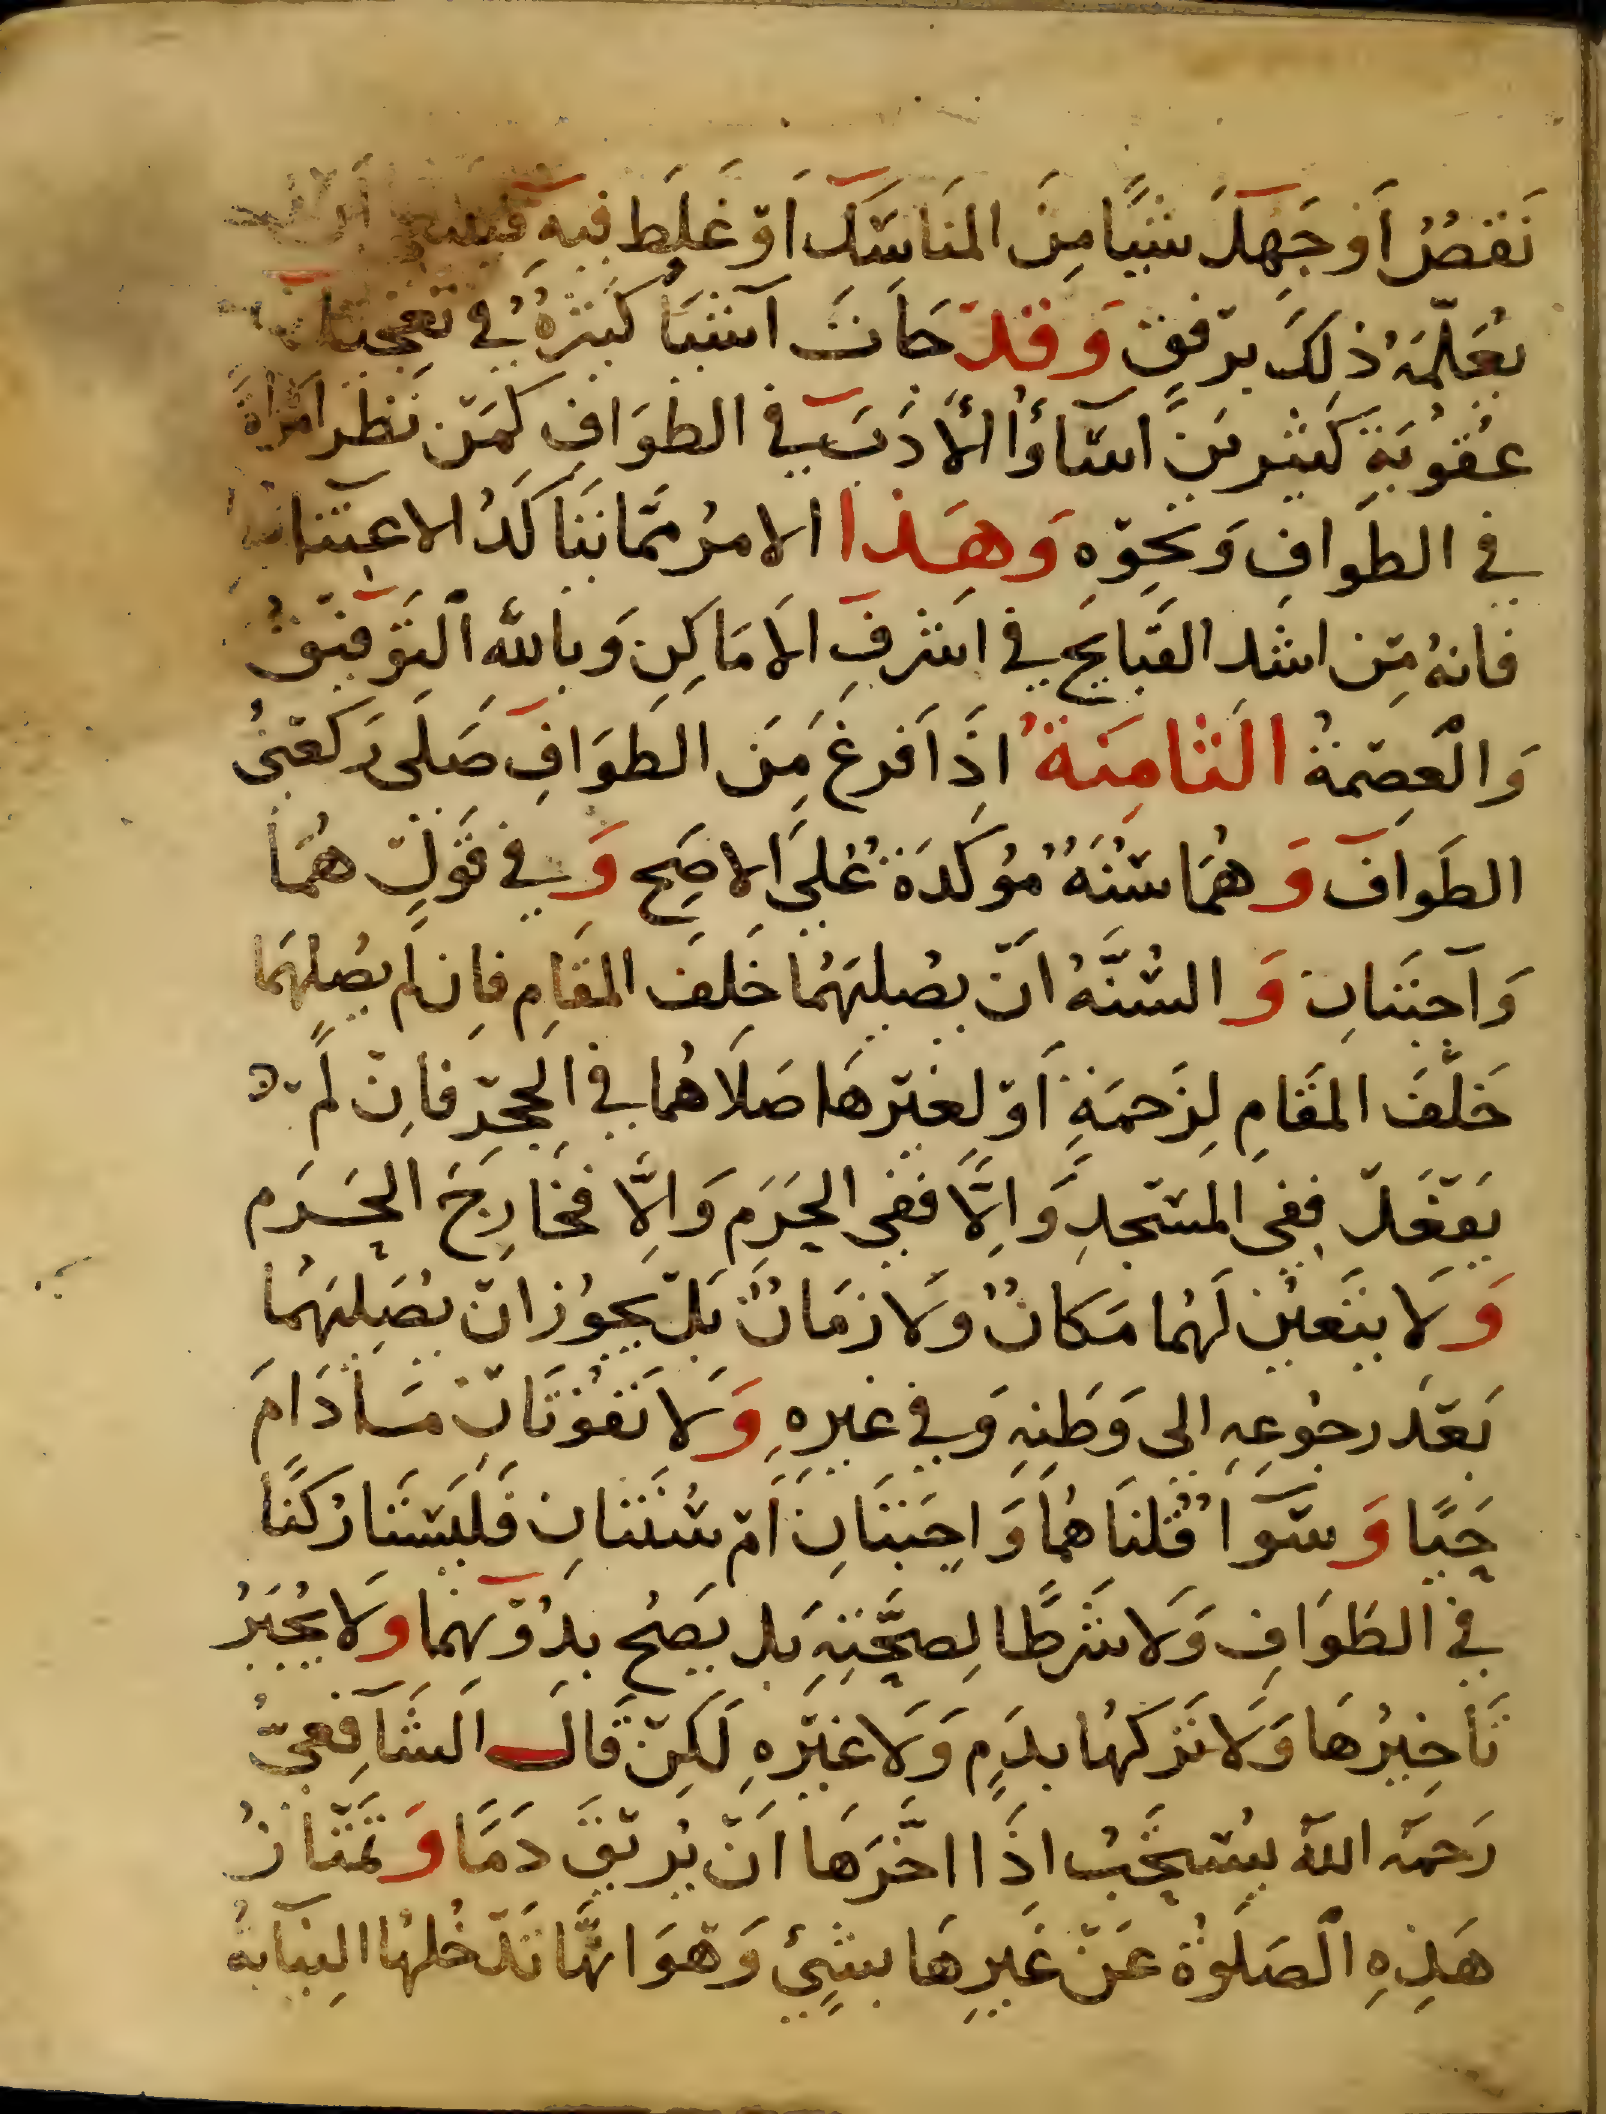 نَقصُ اَو جَهِلَ شَيًا مِنَ المنَاسكَ اَوْ غَلِطَ فِيهِ فينبغى اَن
يُعَلّمَهُ ذلِكَ برِفقٍ وَقَدْ جَاتْ آشيَا كَثيرَةُ في تعجيل
عقُوبَةِ كَثيرينَ اسَاؤُا الأَدَبَ في الطوَافِ كَمَن نَظرَ امرَاةً
في الطوافِ وَنحوِه وَهَذا الامرُ ممّا يَتَاكَدُ الاعتنا
فانهُ مِن اشد القبَايح في اشرفِ الاَمَاكِنِ وَبالله التَوفيقُ
وَالْعِصمَةُ الثامِنَةُ اذَا فَرغَ مِنَ الطوَافِ صَلَى رَكعتىُ
الطَوافِ وَهُمَا سُنَةُ مُؤكدَةُ عَلىَ الاصَحِ وَفي قَولٍ هُمَا
وَاجِبَتانِ وَالسُنَّةُ انْ يصُليَهُمَا خَلفَ المقَامِ فاِن لم يصُلِهمَا
خَلْفَ المقَامِ لِزَحمَةٍ اَوْ لغَيْرهَا صَلَاهُمَا في الحِجْرِ فاِنْ لمْ
يَفعَلْ ففى المسْجدِ وَاِلَّا ففِى الحَرَم وَاِلَّا فخَارِجَ الحَرَم
وَلَا يتَعيَن لَهُما مَكانُ وَلَا زمَانُ بَلْ يجوُز انْ يصُلِيَهُمَا
بَعْدَ رجوُعِهِ الى وَطَنِهِ وَفي غيرِهِ وَلَا تَفوُتَانِ مَادَامَ
حَيًا وَسَوَا قُلنَا هُمَا وَاجِبَتَانِ اَمْ سُنَتَانِ فَليسَتَا رُكنًا
في الطَوَافِ وَلَا شَرطًا لِصِحَّتِهِ بَل يَصِحُ بدُوْنِهِمَا وَلَا يُجبَرُ
تَاخِيرُهَا وَلَا تَركهُا بدَمٍ وَلَا غَيْرِهِ لَكِنْ قَالَ الشَافِعِيُّ
رَحمَهُ اللهُ يسُتَحَبُ اذَا اخَّرَهَا انْ يُرِيْقَ دَمًا وَتَمتَازُ
هَذِهِ الصَلَوةُ عَنْ غَيرِهَا بشِئ وَهوَ انهَّا تَدْخُلهُا النِيَابَةُ